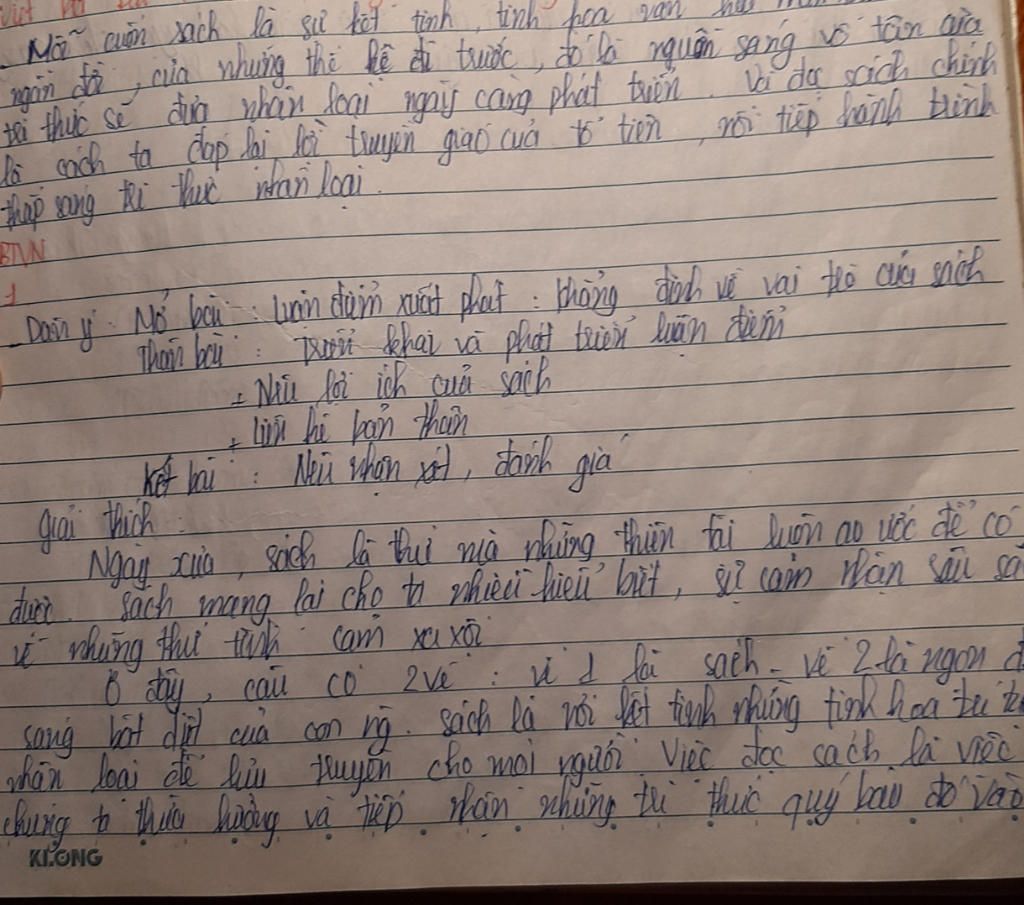 Mỗi cuốn sách là sự kết tinh, tinh hoa văn
ngàn đời, của những thế hệ đi trước, đó là nguồn sáng vô tận của
tri thức sẽ đưa nhân loại ngày càng phát triển. Và đọc sách chính
là cách ta đáp lại lời truyền giao của tổ tiên, nối tiếp hành trình
thắp sáng tri thức nhân loại.
BTVN
1
- Dàn ý: Mở bài: Luận điểm xuất phát: khẳng định về vai trò của sách
Thân bài: Triển khai và phát triển luận điểm
+ Nêu lợi ích của sách
+ Liên hệ bản thân
Kết bài: Nêu nhận xét, đánh giá
Giải thích:
Ngày xưa, sách là thứ mà những thiên tài luôn ao ước để có
được. Sách mang lại cho ta nhiều hiểu biết, sự cảm nhận sâu
về những thứ tình cảm xa xôi
Ở đây, câu có 2 vế: vế 1 là sách - vế 2 là ngọn
sáng bất diệt của con ng. Sách là nơi kết tinh những tinh hoa
nhân loại để lưu truyền cho mọi người. Việc đọc sách là việc
chúng ta thừa hưởng và tiếp nhận những tri thức quý báu đó vào
KLONG